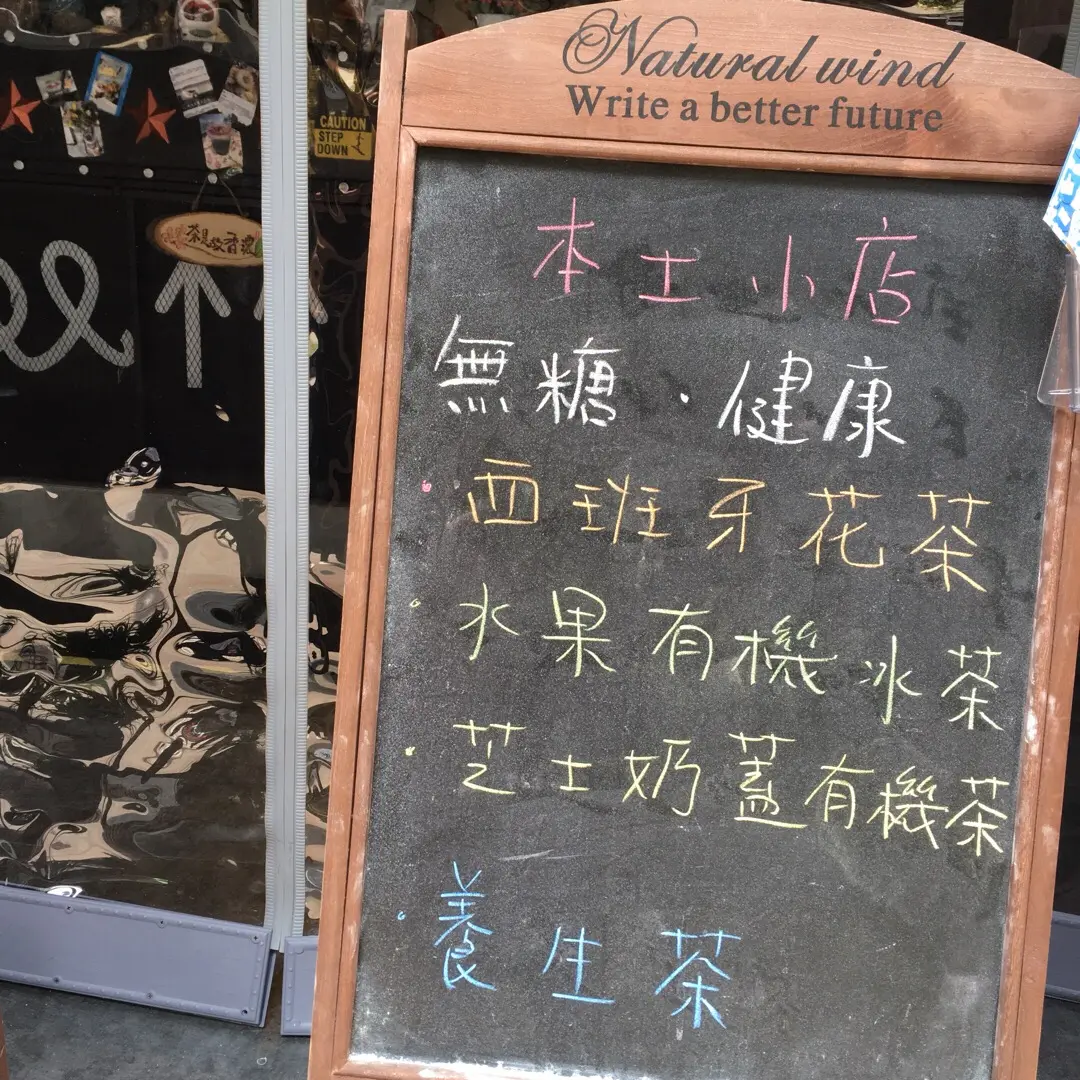 Natural wind
Write a better future
CAUTION
STEP
DOWN
本土小店
無糖・健康
・西班牙花茶
・水果有機冰茶
・芝士奶蓋有機茶
・養生茶